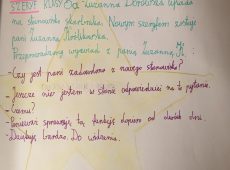 SZEFIE KLASY Od Zuzanna Borowska
na stanowisko skarbnika. Nowym szefem zostaje
pani Zuzanna
Przeprowadzamy wywiad z panią Zuzanną
- Czy jest pani zadowolona z nowego stanowiska?
- Jeszcze nie jestem w stanie odpowiedzieć na to pytanie.
- Czemu?
- Ponieważ sprawuję tą funkcję dopiero od dwóch dni.
- Dziękuję bardzo. Do widzenia.